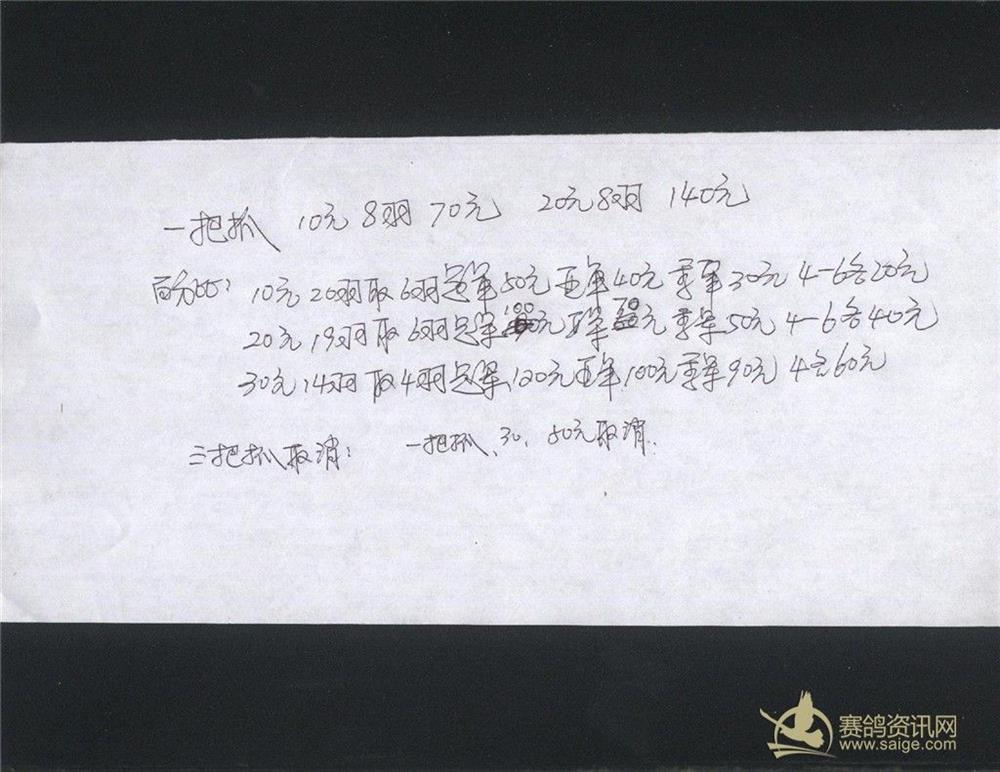 一把抓 10元8羽70元 20元8羽 140元
百分比: 10元20羽取6羽冠军50元亚军40元季军30元4-6各20元
20元19羽取6羽冠军100元亚军元季军50元4-6各40元
30元14羽取4羽冠军120元亚军100元季军90元4名60元
三把抓取消: 一把抓、30、50元取消.
赛鸽资讯网
www.saige.com